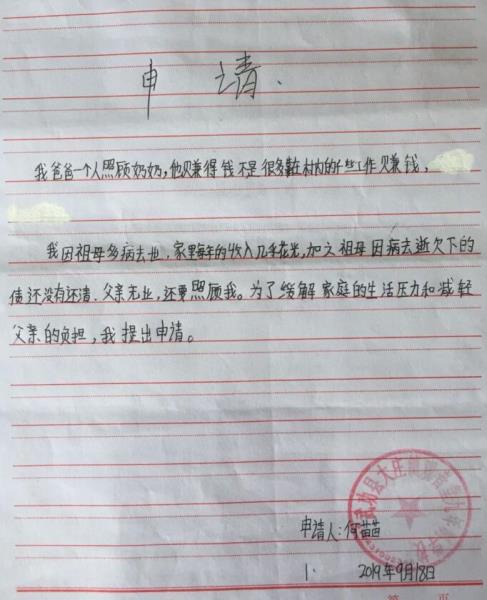 申 请.
我爸爸一个人照顾奶奶,他赚得钱不是很多靠在村内的干些工作赚钱,
我因祖母多病去世,家里每年的收入几乎花光,加之祖母因病去逝欠下的
债还没有还清.父亲无业,还要照顾我。为了缓解家庭的生活压力和减轻
父亲的负担,我提出申请。
武功县大庄
申请人:何苗苗
1. 2019年9月18日
第 页